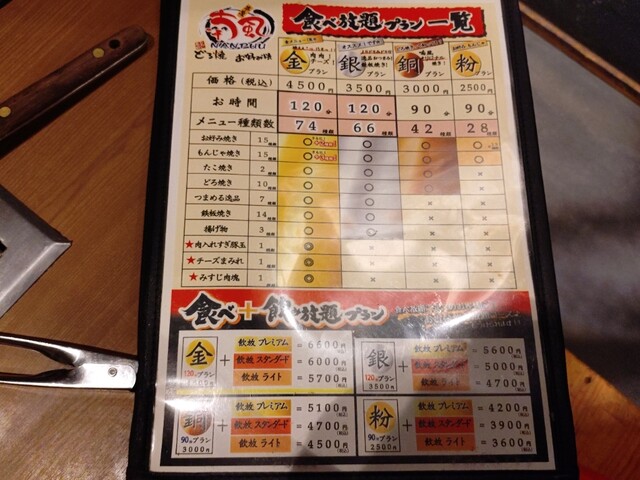 食べ放題プラン一覧
どろ焼 お好み焼
金 肉肉チーズ! プラン
銀 プラン
銅 プラン
粉 プラン
価格(税込) 4500円 3500円 3000円 2500円
お時間 120分 120分 90分 90分
メニュー種類数 74種類 66種類 42種類 28種類
お好み焼き 15種類 ○ ○ ○ ○
もんじゃ焼き 15種類 ○ ○ ○ ○
たこ焼き 2種類 ○ ○ ○ ×
どろ焼き 10種類 ○ ○ ○ ×
つまめる逸品 7種類 ○ ○ × ×
鉄板焼き 14種類 ○ ○ × ×
揚げ物 3種類 ○ ○ × ×
★肉入れすぎ豚玉 1種類 ◎ × × ×
★チーズまみれ 1種類 ◎ × × ×
★みすじ肉塊 1種類 ◎ × × ×
食べ+飲み放題プラン
金 120分プラン 4500円
+ 飲放 プレミアム = 6600円(税込)
飲放 スタンダード = 6000円(税込)
飲放 ライト = 5700円(税込)
銀 120分プラン 3500円
+ 飲放 プレミアム = 5600円(税込)
飲放 スタンダード = 5000円(税込)
飲放 ライト = 4700円(税込)
銅 90分プラン 3000円
+ 飲放 プレミアム = 5100円(税込)
飲放 スタンダード = 4700円(税込)
飲放 ライト = 4500円(税込)
粉 90分プラン 2500円
+ 飲放 プレミアム = 4200円(税込)
飲放 スタンダード = 3900円(税込)
飲放 ライト = 3600円(税込)